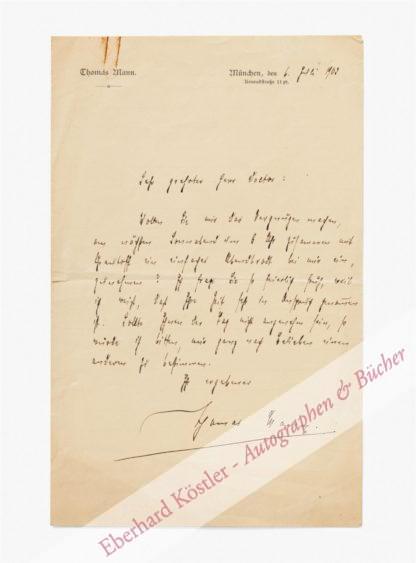 Thomas Mann.
München, den 6. Juli 1903
Konradstraße 11 pt.
Sehr geehrter Herr Doctor:
Wollen Sie mir das Vergnügen machen,
am nächsten Sonnabend um 8 Uhr zusammen mit
ein einfaches Abendbrot bei mir ein-
zunehmen? Ich frage Sie so früh, weil
ich weiß, daß Ihre Zeit sehr in Anspruch genommen
ist. Sollte Ihnen der Tag nicht angenehm sein, so
würde ich bitten, mir ganz nach Belieben einen
anderen zu bestimmen.
Ihr ergebener
Thomas Mann.
Eberhard Köstler - Autographen & Bücher